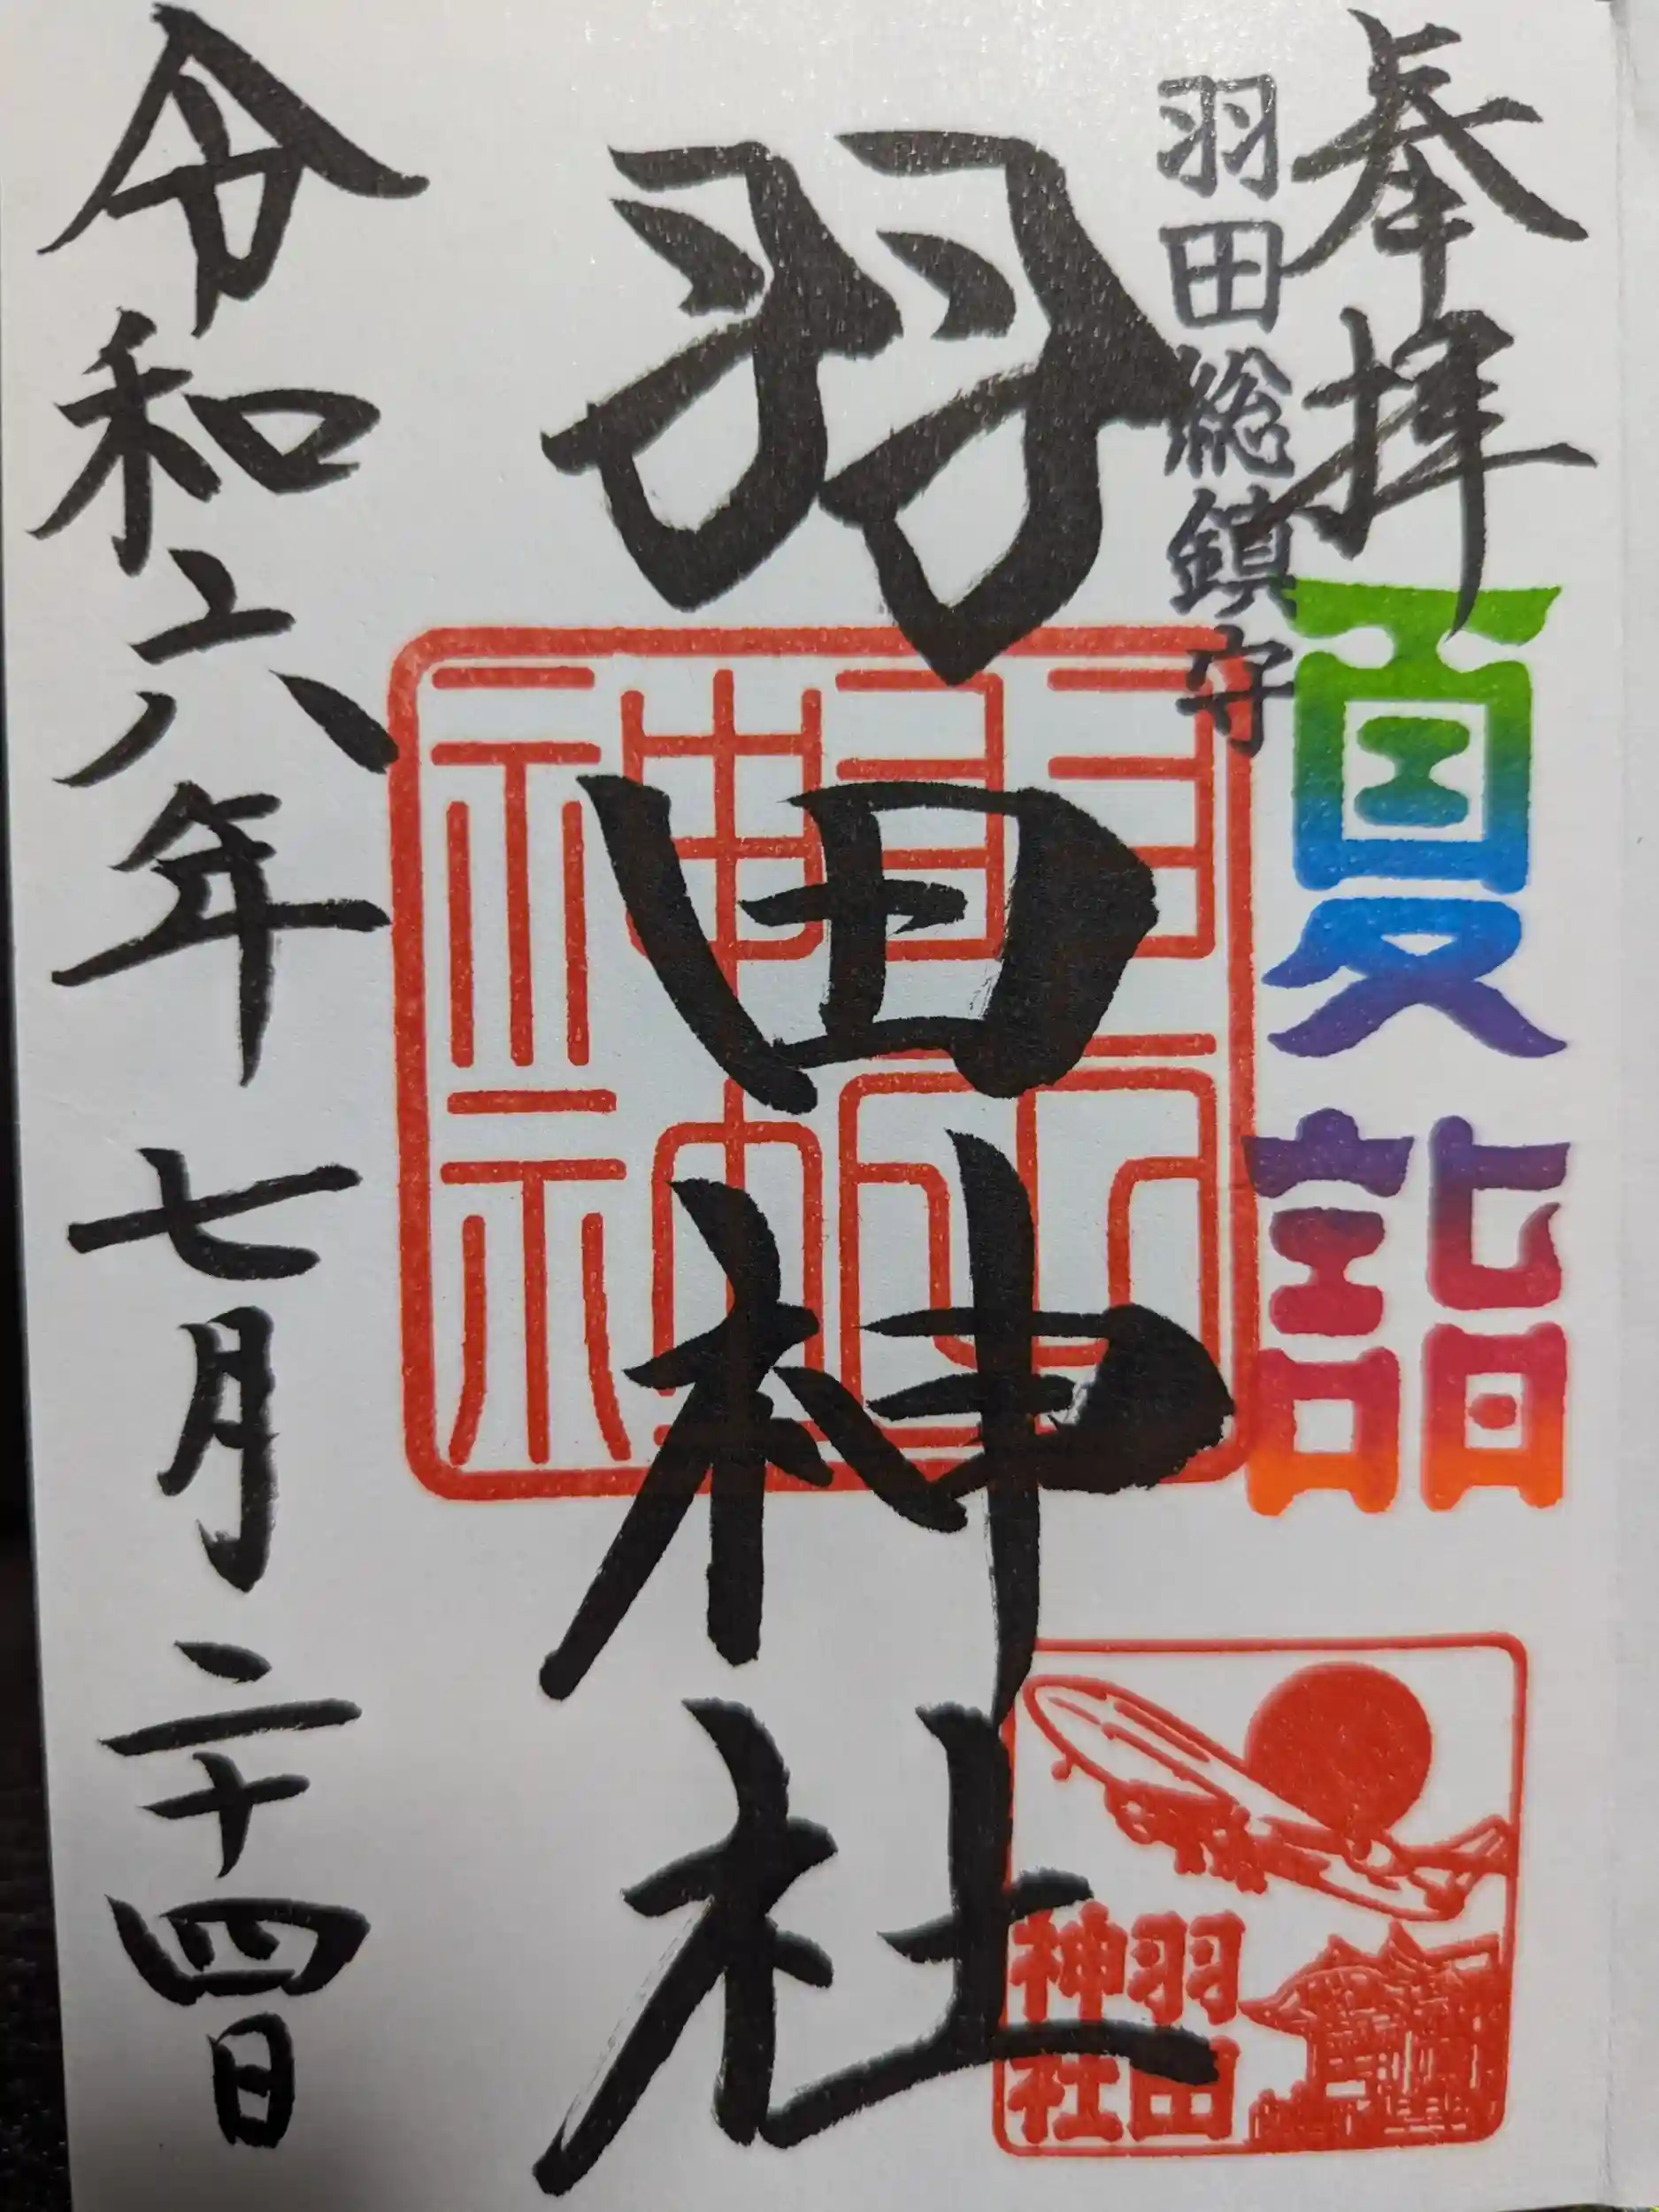 奉拝
夏詣
羽田総鎮守
羽田神社
羽田
神社
令和六年 七月二十四日